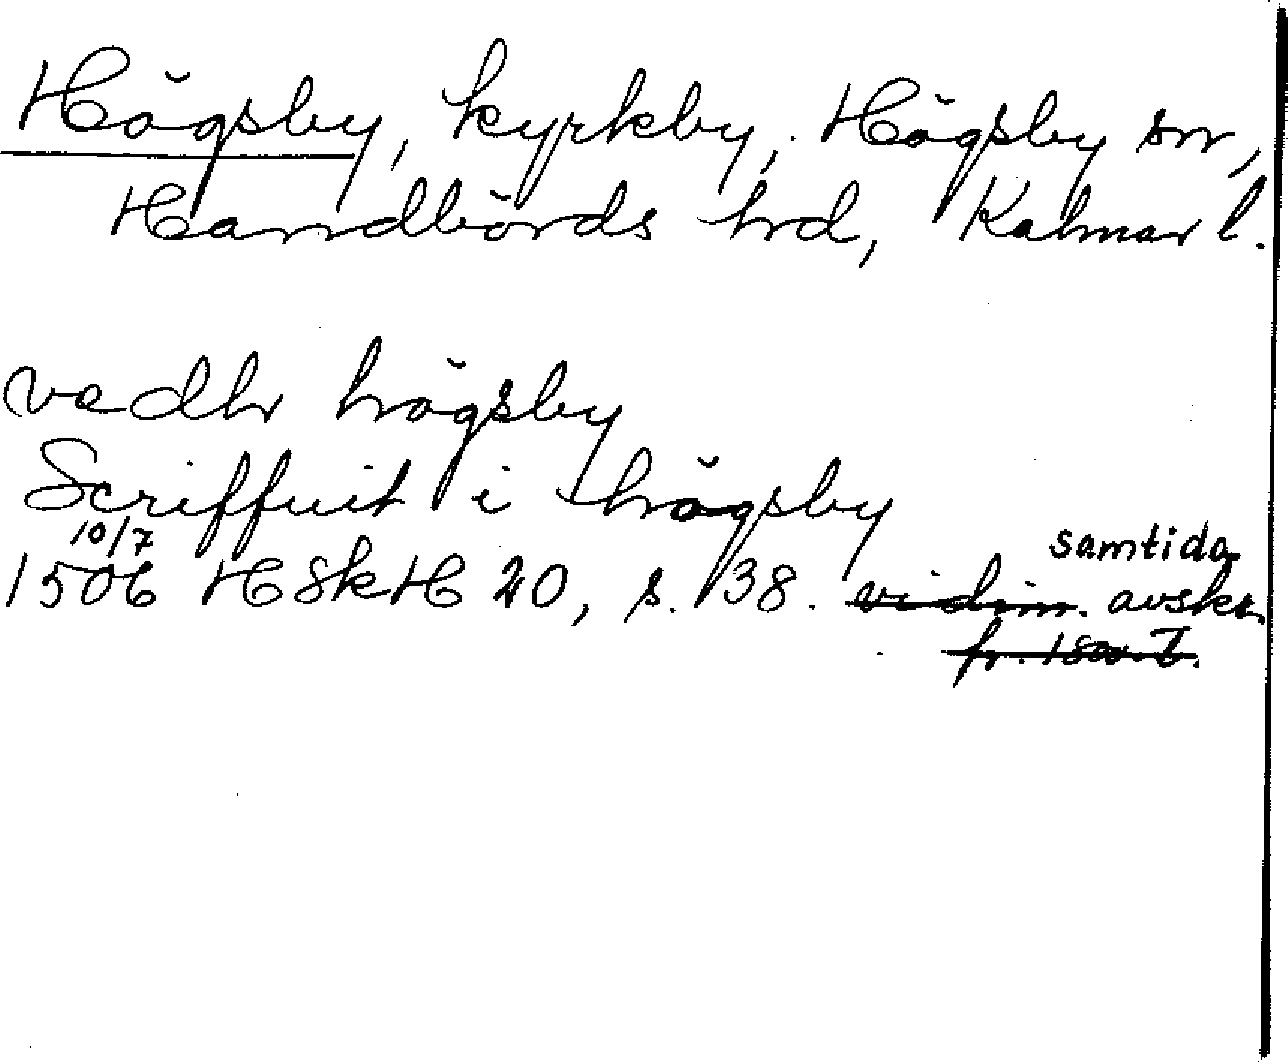 Högsby, kyrkby, Högsby sn,
Handbörds hd, Kalmar l.
vedh högsby
Scriffuit i högsby
10/7
1506 HSkH 20, s. 138. vidim. avskr.
samtida
fr. 1500-t.